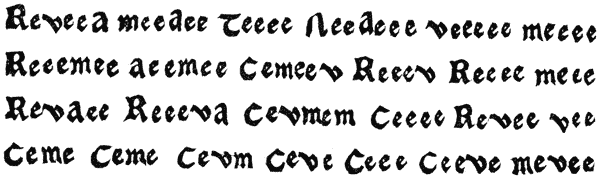 Reveea meeaee Teeee Neeaeee veeeee meeee
Reeemee aeemee cemeev Reeev Reeee meee
Revaee Reeeva cevmem ceeee Revee vee
ceme ceme cevm ceve ceee ceeve mevee